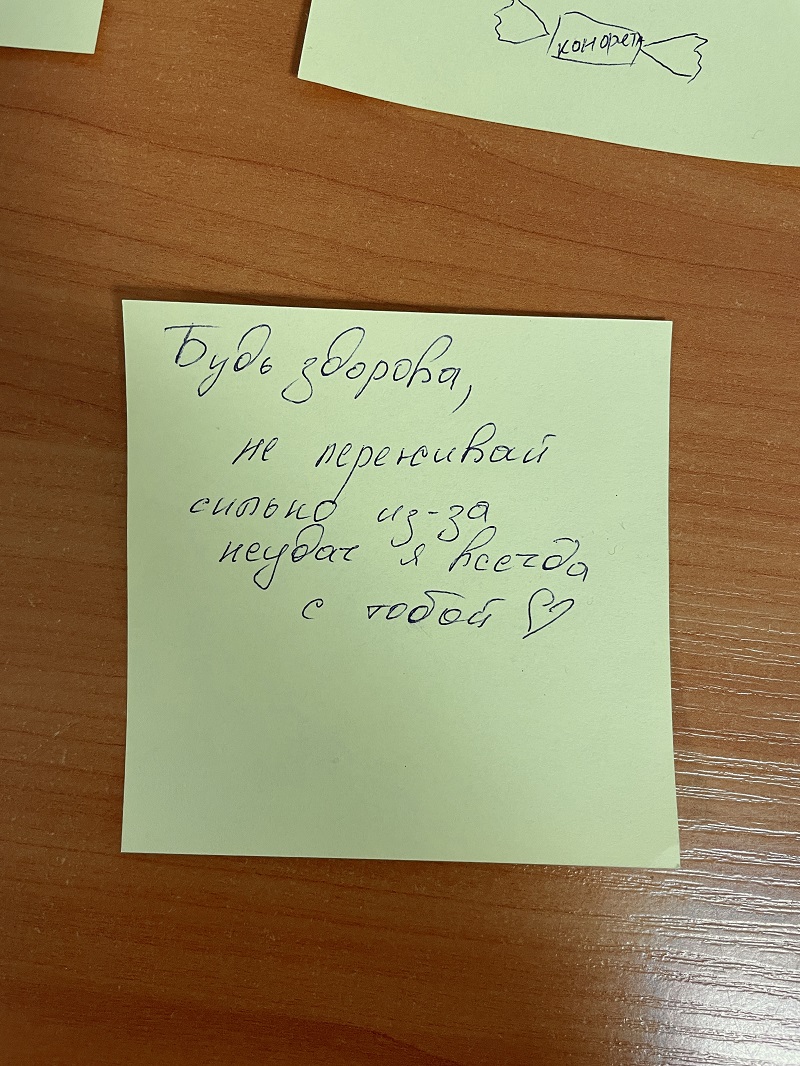 конфета
Будь здорова,
не переживай
сильно из-за
неудач я всегда
с тобой ♡